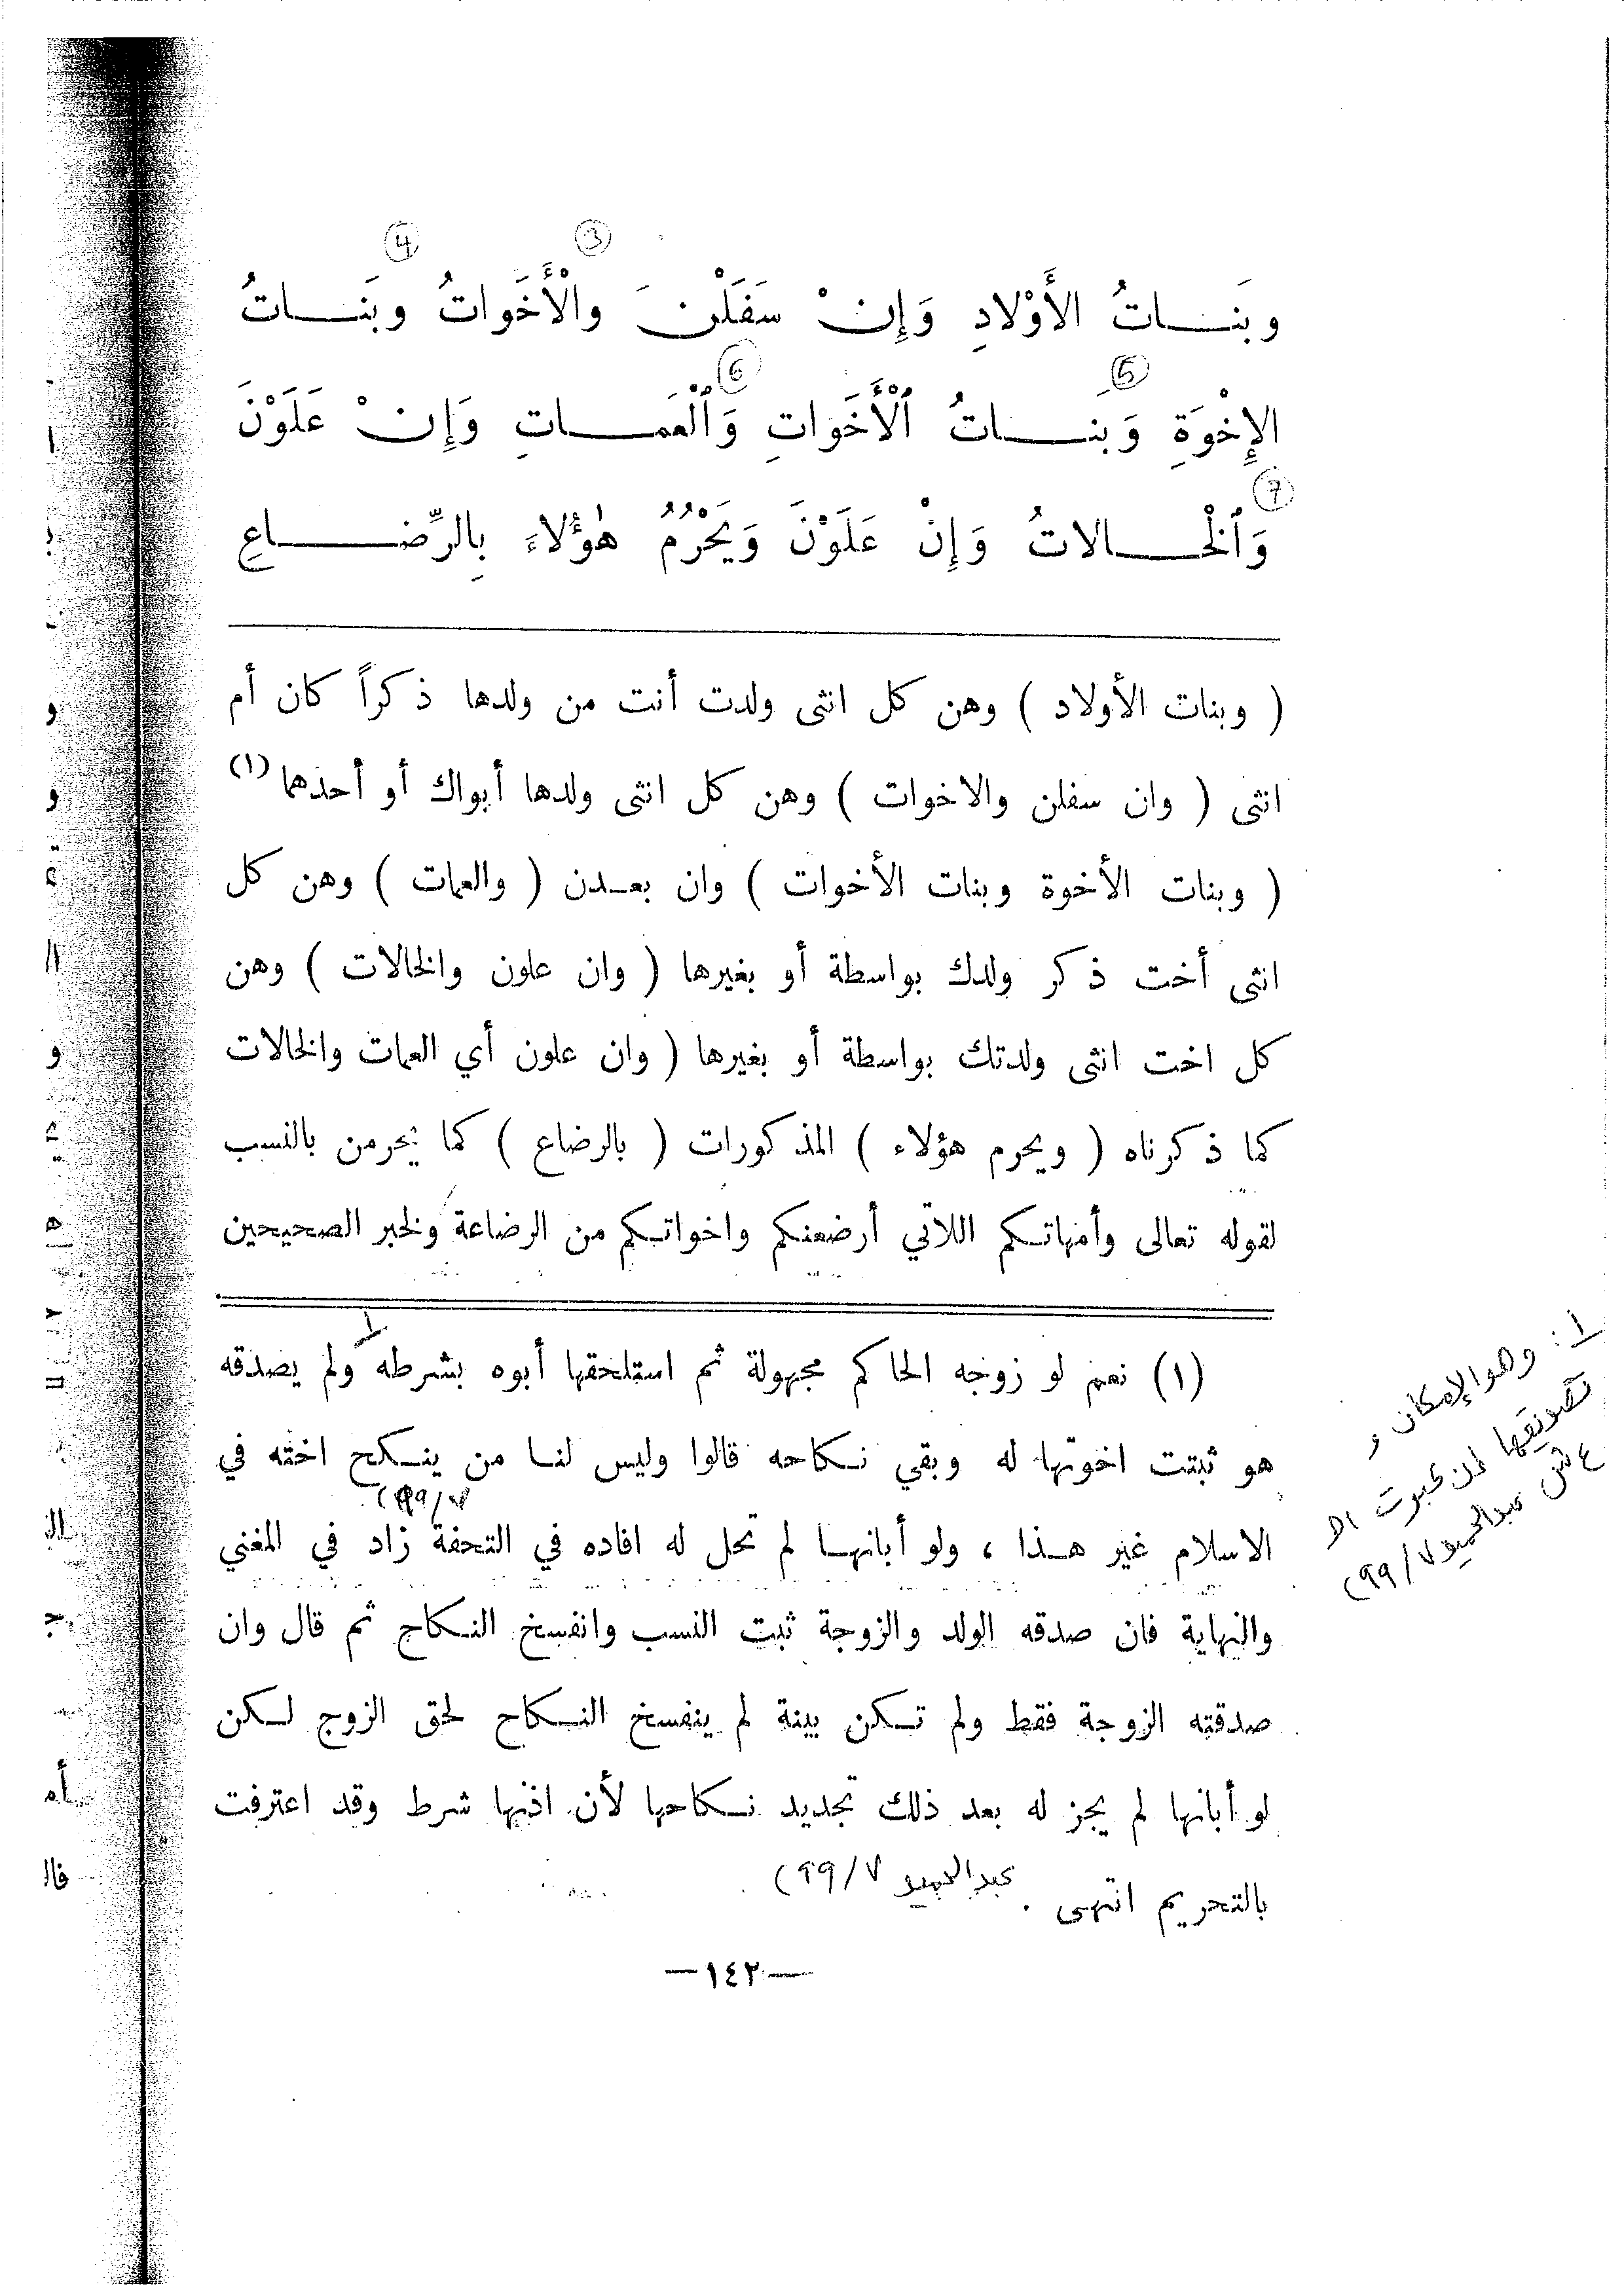 ④ ③
وبَنَــاتُ الأَوْلادِ وَإِنْ سَفَلْنَ والْأَخَواتُ وبَنَــاتُ
⑥ ⑤
الإِخْوَةِ وَبنــاتُ ٱلْأَخَوَاتِ وَٱلْعَمَــاتِ وَإِنْ عَلَوْنَ
⑦
وَٱلْخَــالاتُ وَإِنْ عَلَوْنَ وَيَحْرُمُ هٰؤُلاءَ بِالرِّضَــاعِ
( وبنات الأولاد ) وهن كل انثى ولدت أنت من ولدها ذكراً كان أم
انثى ( وان سفلن والاخوات ) وهن كل انثى ولدها أبواك أو أحدهما (١)
( وبنات الأخوة وبنات الأخوات ) وان بعــدن ( والعمات ) وهن كل
انثى أخت ذكر ولدك بواسطة أو بغيرها ( وان علون والخالات ) وهن
كل اخت انثى ولدتك بواسطة أو بغيرها ( وان علون أي العمات والخالات
كما ذكرناه ( ويحرم هؤلاء ) المذكورات ( بالرضاع ) كما يحرمن بالنسب
لقوله تعالى وأمهاتكم اللاتي أرضعنكم واخواتكم من الرضاعة ولخبر الصحيحين
(١) نعم لو زوجه الحاكم مجهولة ثم استلحقها أبوه بشرطه ولم يصدقه
هو ثبتت اخوتها له وبقي نكاحه قالوا وليس لنا من ينكح اخته في
٧/٢٩٩
الاسلام غير هــذا ، ولو أبانهــا لم تحل له افاده في التحفة زاد في المغني
والنهاية فان صدقه الولد والزوجة ثبت النسب وانفسخ النكاح ثم قال وان
صدقته الزوجة فقط ولم تكن بينة لم ينفسخ النكاح لحق الزوج لكن
لو أبانها لم يجز له بعد ذلك تجديد نكاحها لأن اذنها شرط وقد اعترفت
بالتحريم انتهى . عبدالحميد ٧/٢٩٩
—١٤٢—
: وهو الإمكان و
تصديقها إن كبرت اهـ
ع ش عبدالحميد ٧/٢٩٩